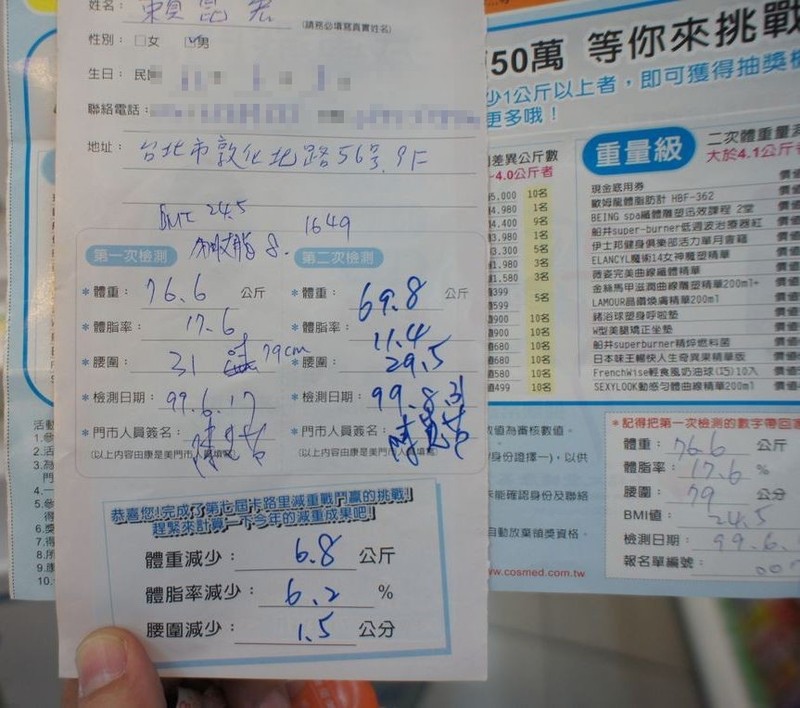 姓名：
(請務必填寫真實姓名)
性別：□女 ☑男
生日：民
聯絡電話：
地址：台北市敦化北路56號.9F
24.5
內臟脂 8.
1649
第一次檢測
*體重：76.6 公斤
*體脂率：17.6
*腰圍：31 79cm
*檢測日期：99.6.17
*門市人員簽名：
(以上內容由康是美門市人員填寫)
第二次檢測
*體重：69.8 公斤
*體脂率：11.4
*腰圍：29.5
*檢測日期：99.8.31
*門市人員簽名：
(以上內容由康是美門市人員填寫)
恭喜您!完成了第七屆卡路里減重戰鬥贏的挑戰!
趕緊來計算一下今年的減重成果吧!
體重減少：6.8 公斤
體脂率減少：6.2 %
腰圍減少：1.5 公分
50萬 等你來挑戰
少1公斤以上者，即可獲得抽獎機
更多哦！
差異公斤數
-4.0公斤者
5.000 10名
4.980 1名
4.400 9名
3.980 1名
3.300 5名
1.980 3名
1.580 3名
399
599 5名
900 10名
900 10名
680 10名
680 10名
580 10名
499 10名
重量級
二次體重量
大於4.1公斤
現金底用券
歐姆龍體脂肪計 HBF-362
BEING spa纖體雕塑迅效課程 2堂
船井super-burner低週波治療器紅
伊士邦健身俱樂部活力單月會籍
ELANCYL魔術14女神雕塑精華
薇姿完美曲線纖體精華
金絲馬甲滋潤曲線雕塑精華200ml+
LAMOUR晶鑽煥膚精華200ml
豬浴球塑身呼啦墊
W型美腿矯正坐墊
船井superburner精焠燃料菌
日本味王暢快人生奇異果精華版
FrenchWise輕食風奶油球(巧)10入
SEXYLOOK動感勻體曲線精華200ml
數值為審核數值。
身份證擇一)，以供
未能確認身份及聯絡
自動放棄領獎資格。
www.cosmed.com.tw
*記得把第一次檢測的數字帶回
體重：76.6 公斤
體脂率：17.6 %
腰圍：79 公分
BMI值：24.5
檢測日期：99.6.
報名單編號：